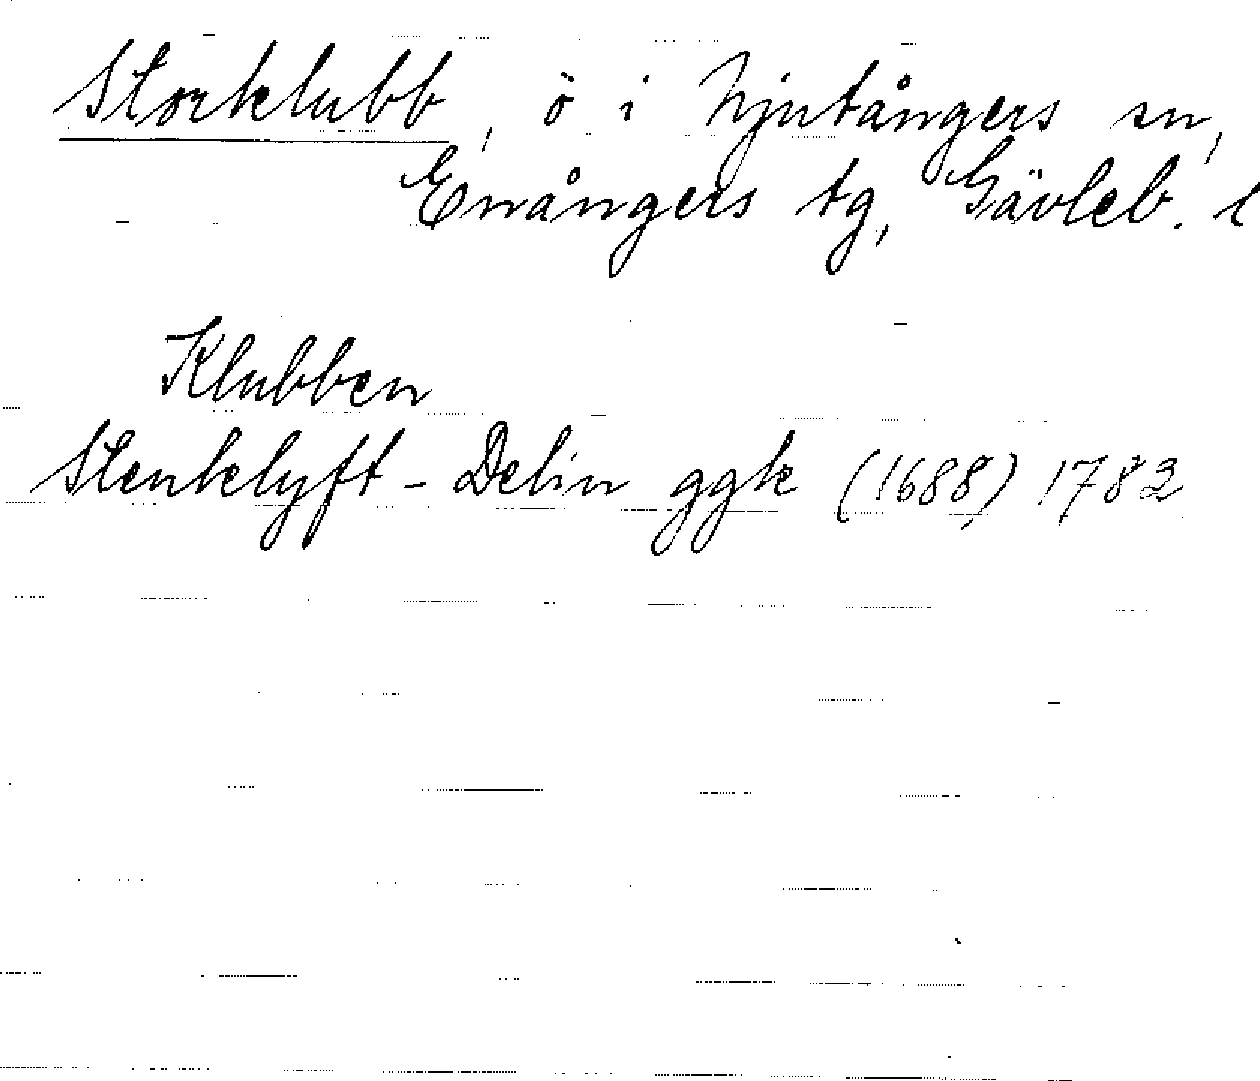 Storklubb, ö i Njutångers sn,
Enångers tg, Gävleb. l
Klubben
Stenklyft - Delin ggk (1688) 1782